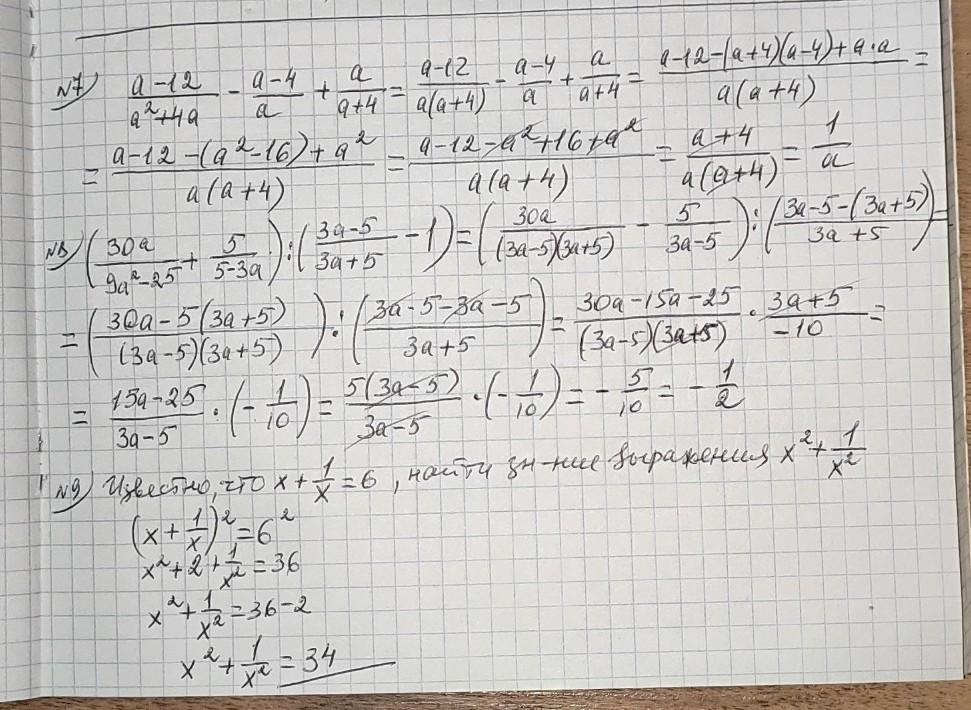 №7) (a-12)/(a²+4a) - (a-4)/a + a/(a+4) = (a-12)/(a(a+4)) - (a-4)/a + a/(a+4) = (a-12-(a+4)(a-4)+a·a)/(a(a+4)) =
= (a-12-(a²-16)+a²)/(a(a+4)) = (a-12-a²+16+a²)/(a(a+4)) = (a+4)/(a(a+4)) = 1/a
№8) (30a/(9a²-25) + 5/(5-3a)) : ((3a-5)/(3a+5) - 1) = (30a/((3a-5)(3a+5)) - 5/(3a-5)) : ((3a-5-(3a+5))/(3a+5)) =
= ((30a-5(3a+5))/((3a-5)(3a+5))) : ((3a-5-3a-5)/(3a+5)) = (30a-15a-25)/((3a-5)(3a+5)) · (3a+5)/(-10) =
= (15a-25)/(3a-5) · (-1/10) = 5(3a-5)/(3a-5) · (-1/10) = -5/10 = -1/2
№9) Известно, что x + 1/x = 6, найти зн-ние выражения x² + 1/x²
(x + 1/x)² = 6²
x² + 2 + 1/x² = 36
x² + 1/x² = 36-2
x² + 1/x² = 34